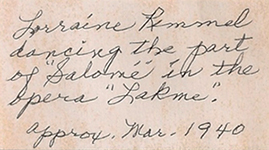 Lorraine Remmel
dancing the part
of "Salomé" in the
opera "Lakme".
approx. Mar. 1940